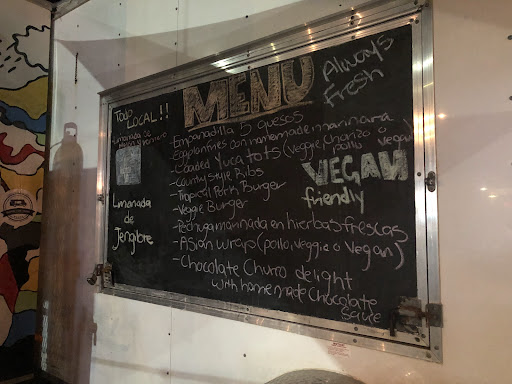 MENU
Always
Fresh
Todo
LOCAL!!
Limonada de
Limonada
de
Jengibre
- Empanadilla 5 quesos
- Eggplant fries con homemade marinara
- Loaded Yuca tots (veggie, chorizo o pollo vegan)
- Country Style Ribs
- Tropical Pork Burger
- Veggie Burger
- Pechuga marinada en hierbas frescas
- Asian wraps (pollo, veggie o vegan)
- Chocolate Churro delight
with homemade Chocolate
sauce
VEGAN
friendly